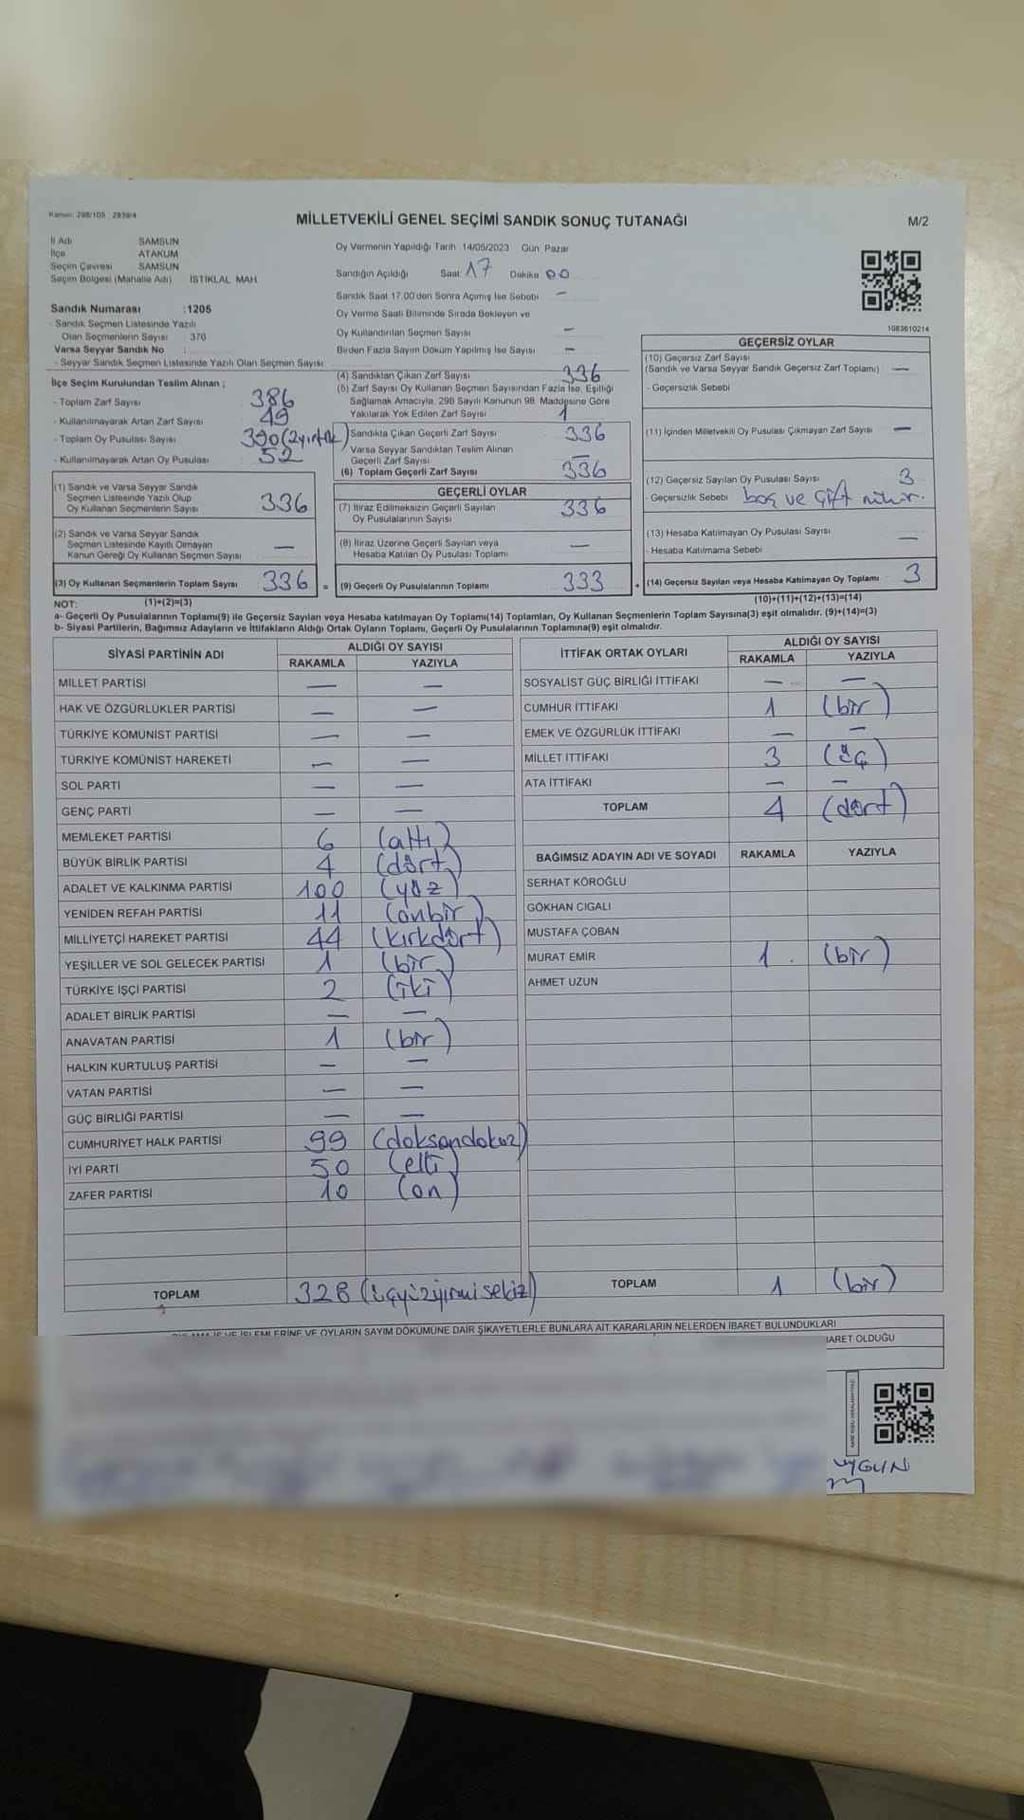 Kanun: 298/105 , 2839/4
MİLLETVEKİLİ GENEL SEÇİMİ SANDIK SONUÇ TUTANAĞI
M/2
İl Adı SAMSUN
İlçe ATAKUM
Seçim Çevresi SAMSUN
Seçim Bölgesi (Mahalle Adı) İSTİKLAL MAH
Sandık Numarası :1205
- Sandık Seçmen Listesinde Yazılı
Olan Seçmenlerin Sayısı : 370
Varsa Seyyar Sandık No :
- Seyyar Sandık Seçmen Listesinde Yazılı Olan Seçmen Sayısı :
Oy Vermenin Yapıldığı Tarih 14/05/2023 Gün Pazar
Sandığın Açıldığı Saat: 17 Dakika 00
Sandık Saat 17.00'den Sonra Açılmış İse Sebebi —
Oy Verme Saati Bitiminde Sırada Bekleyen ve
Oy Kullandırılan Seçmen Sayısı —
Birden Fazla Sayım Döküm Yapılmış İse Sayısı —
1083610214
İlçe Seçim Kurulundan Teslim Alınan ;
- Toplam Zarf Sayısı 386
- Kullanılmayarak Artan Zarf Sayısı 49
- Toplam Oy Pusulası Sayısı 390 (2 yırtık)
- Kullanılmayarak Artan Oy Pusulası 52
(1) Sandık ve Varsa Seyyar Sandık
Seçmen Listesinde Yazılı Olup
Oy Kullanan Seçmenlerin Sayısı 336
(2) Sandık ve Varsa Seyyar Sandık
Seçmen Listesinde Kayıtlı Olmayan
Kanun Gereği Oy Kullanan Seçmen Sayısı —
(3) Oy Kullanan Seçmenlerin Toplam Sayısı 336 =
(1)+(2)=(3)
(4) Sandıktan Çıkan Zarf Sayısı 336
(5) Zarf Sayısı Oy Kullanan Seçmen Sayısından Fazla İse, Eşitliği
Sağlamak Amacıyla, 298 Sayılı Kanunun 98. Maddesine Göre
Yakılarak Yok Edilen Zarf Sayısı 1
Sandıkta Çıkan Geçerli Zarf Sayısı 336
Varsa Seyyar Sandıktan Teslim Alınan
Geçerli Zarf Sayısı —
(6) Toplam Geçerli Zarf Sayısı 336
GEÇERLİ OYLAR
(7) İtiraz Edilmeksizin Geçerli Sayılan
Oy Pusulalarının Sayısı 336
(8) İtiraz Üzerine Geçerli Sayılan veya
Hesaba Katılan Oy Pusulası Toplamı —
(9) Geçerli Oy Pusulalarının Toplamı 333 +
GEÇERSİZ OYLAR
(10) Geçersiz Zarf Sayısı
(Sandık ve Varsa Seyyar Sandık Geçersiz Zarf Toplamı) —
- Geçersizlik Sebebi
(11) İçinden Milletvekili Oy Pusulası Çıkmayan Zarf Sayısı —
(12) Geçersiz Sayılan Oy Pusulası Sayısı 3
- Geçersizlik Sebebi boş ve çift mühür.
(13) Hesaba Katılmayan Oy Pusulası Sayısı —
- Hesaba Katılmama Sebebi
(14) Geçersiz Sayılan veya Hesaba Katılmayan Oy Toplamı 3
(10)+(11)+(12)+(13)=(14)
NOT:
a- Geçerli Oy Pusulalarının Toplamı(9) ile Geçersiz Sayılan veya Hesaba katılmayan Oy Toplamı(14) Toplamları, Oy Kullanan Seçmenlerin Toplam Sayısına(3) eşit olmalıdır. (9)+(14)=(3)
b- Siyasi Partilerin, Bağımsız Adayların ve İttifakların Aldığı Ortak Oyların Toplamı, Geçerli Oy Pusulalarının Toplamına(9) eşit olmalıdır.
SİYASİ PARTİNİN ADI ALDIĞI OY SAYISI
RAKAMLA YAZIYLA
MİLLET PARTİSİ — —
HAK VE ÖZGÜRLÜKLER PARTİSİ — —
TÜRKİYE KOMÜNİST PARTİSİ — —
TÜRKİYE KOMÜNİST HAREKETİ — —
SOL PARTİ — —
GENÇ PARTİ — —
MEMLEKET PARTİSİ 6 (altı)
BÜYÜK BİRLİK PARTİSİ 4 (dört)
ADALET VE KALKINMA PARTİSİ 100 (yüz)
YENİDEN REFAH PARTİSİ 11 (onbir)
MİLLİYETÇİ HAREKET PARTİSİ 44 (kırkdört)
YEŞİLLER VE SOL GELECEK PARTİSİ 1 (bir)
TÜRKİYE İŞÇİ PARTİSİ 2 (iki)
ADALET BİRLİK PARTİSİ — —
ANAVATAN PARTİSİ 1 (bir)
HALKIN KURTULUŞ PARTİSİ — —
VATAN PARTİSİ — —
GÜÇ BİRLİĞİ PARTİSİ — —
CUMHURİYET HALK PARTİSİ 99 (doksandokuz)
İYİ PARTİ 50 (elli)
ZAFER PARTİSİ 10 (on)
TOPLAM 328 (üçyüzyirmisekiz)
İTTİFAK ORTAK OYLARI ALDIĞI OY SAYISI
RAKAMLA YAZIYLA
SOSYALİST GÜÇ BİRLİĞİ İTTİFAKI — —
CUMHUR İTTİFAKI 1 (bir)
EMEK VE ÖZGÜRLÜK İTTİFAKI — —
MİLLET İTTİFAKI 3 (üç)
ATA İTTİFAKI — —
TOPLAM 4 (dört)
BAĞIMSIZ ADAYIN ADI VE SOYADI RAKAMLA YAZIYLA
SERHAT KÖROĞLU
GÖKHAN CIGALI
MUSTAFA ÇOBAN
MURAT EMİR 1. (bir)
AHMET UZUN
TOPLAM 1 (bir)
VE OYLARIN SAYIM DÖKÜMÜNE DAİR ŞİKAYETLERLE BUNLARA AİT KARARLARIN NELERDEN İBARET BULUNDUKLARI
İBARET OLDUĞU
UYGUN